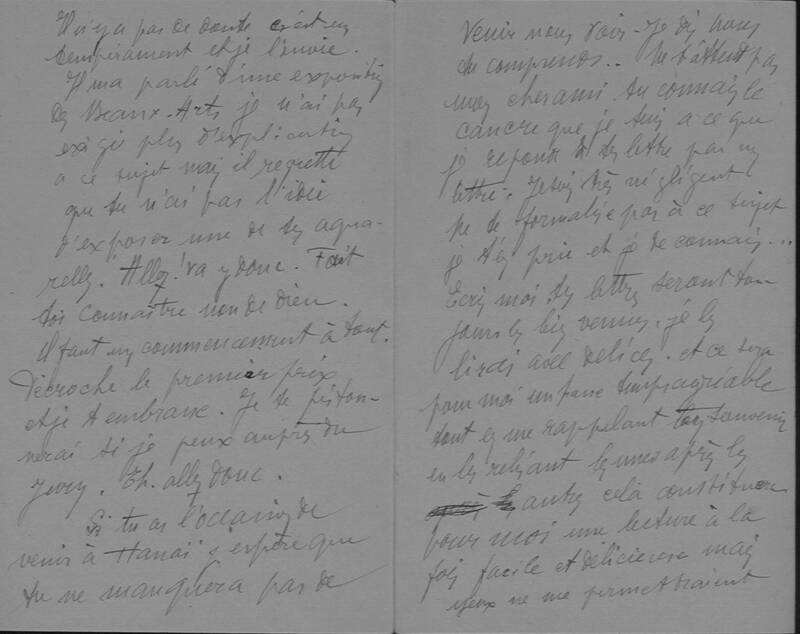 Il n'y a pas de doute c'est un
tempérament et je l'envie.
Il m'a parlé d'une exposition
des Beaux-Arts je n'ai pas
exigé plus d'explication
a ce sujet mais il regrette
que tu n'ais pas l'idée
d'exposer une de tes aqua-
relles. Allez! vas y donc. Fait
toi connaître nom de dieu.
Il faut un commencement à tout.
Décroche le premier prix
et je t'embrasse. Je te piston-
nerai si je peux auprès du
Jury. Eh. allez donc.
Si tu as l'occasion de
venir à Hanoï j'espère que
tu ne manquera pas de
venir nous voir. Je dis nous
tu comprends.. Ne t'attend pas
mon cher ami. tu connais le
cancre que je suis a ce que
je réponde à ta lettre par une
lettre. Je suis très négligent
ne te formalise pas à ce sujet
je t'en prie et je te connais...
Ecris moi tes lettres seront tou-
jours les bien venues. je les
lirai avec délices. et ce sera
pour moi un passe temps agréable
tout en me rappelant souvenirs
en les relisant les unes après les
autres celà constituera
pour moi une lecture à la
fois facile et délicieuse mais
yeux ne me permettraient